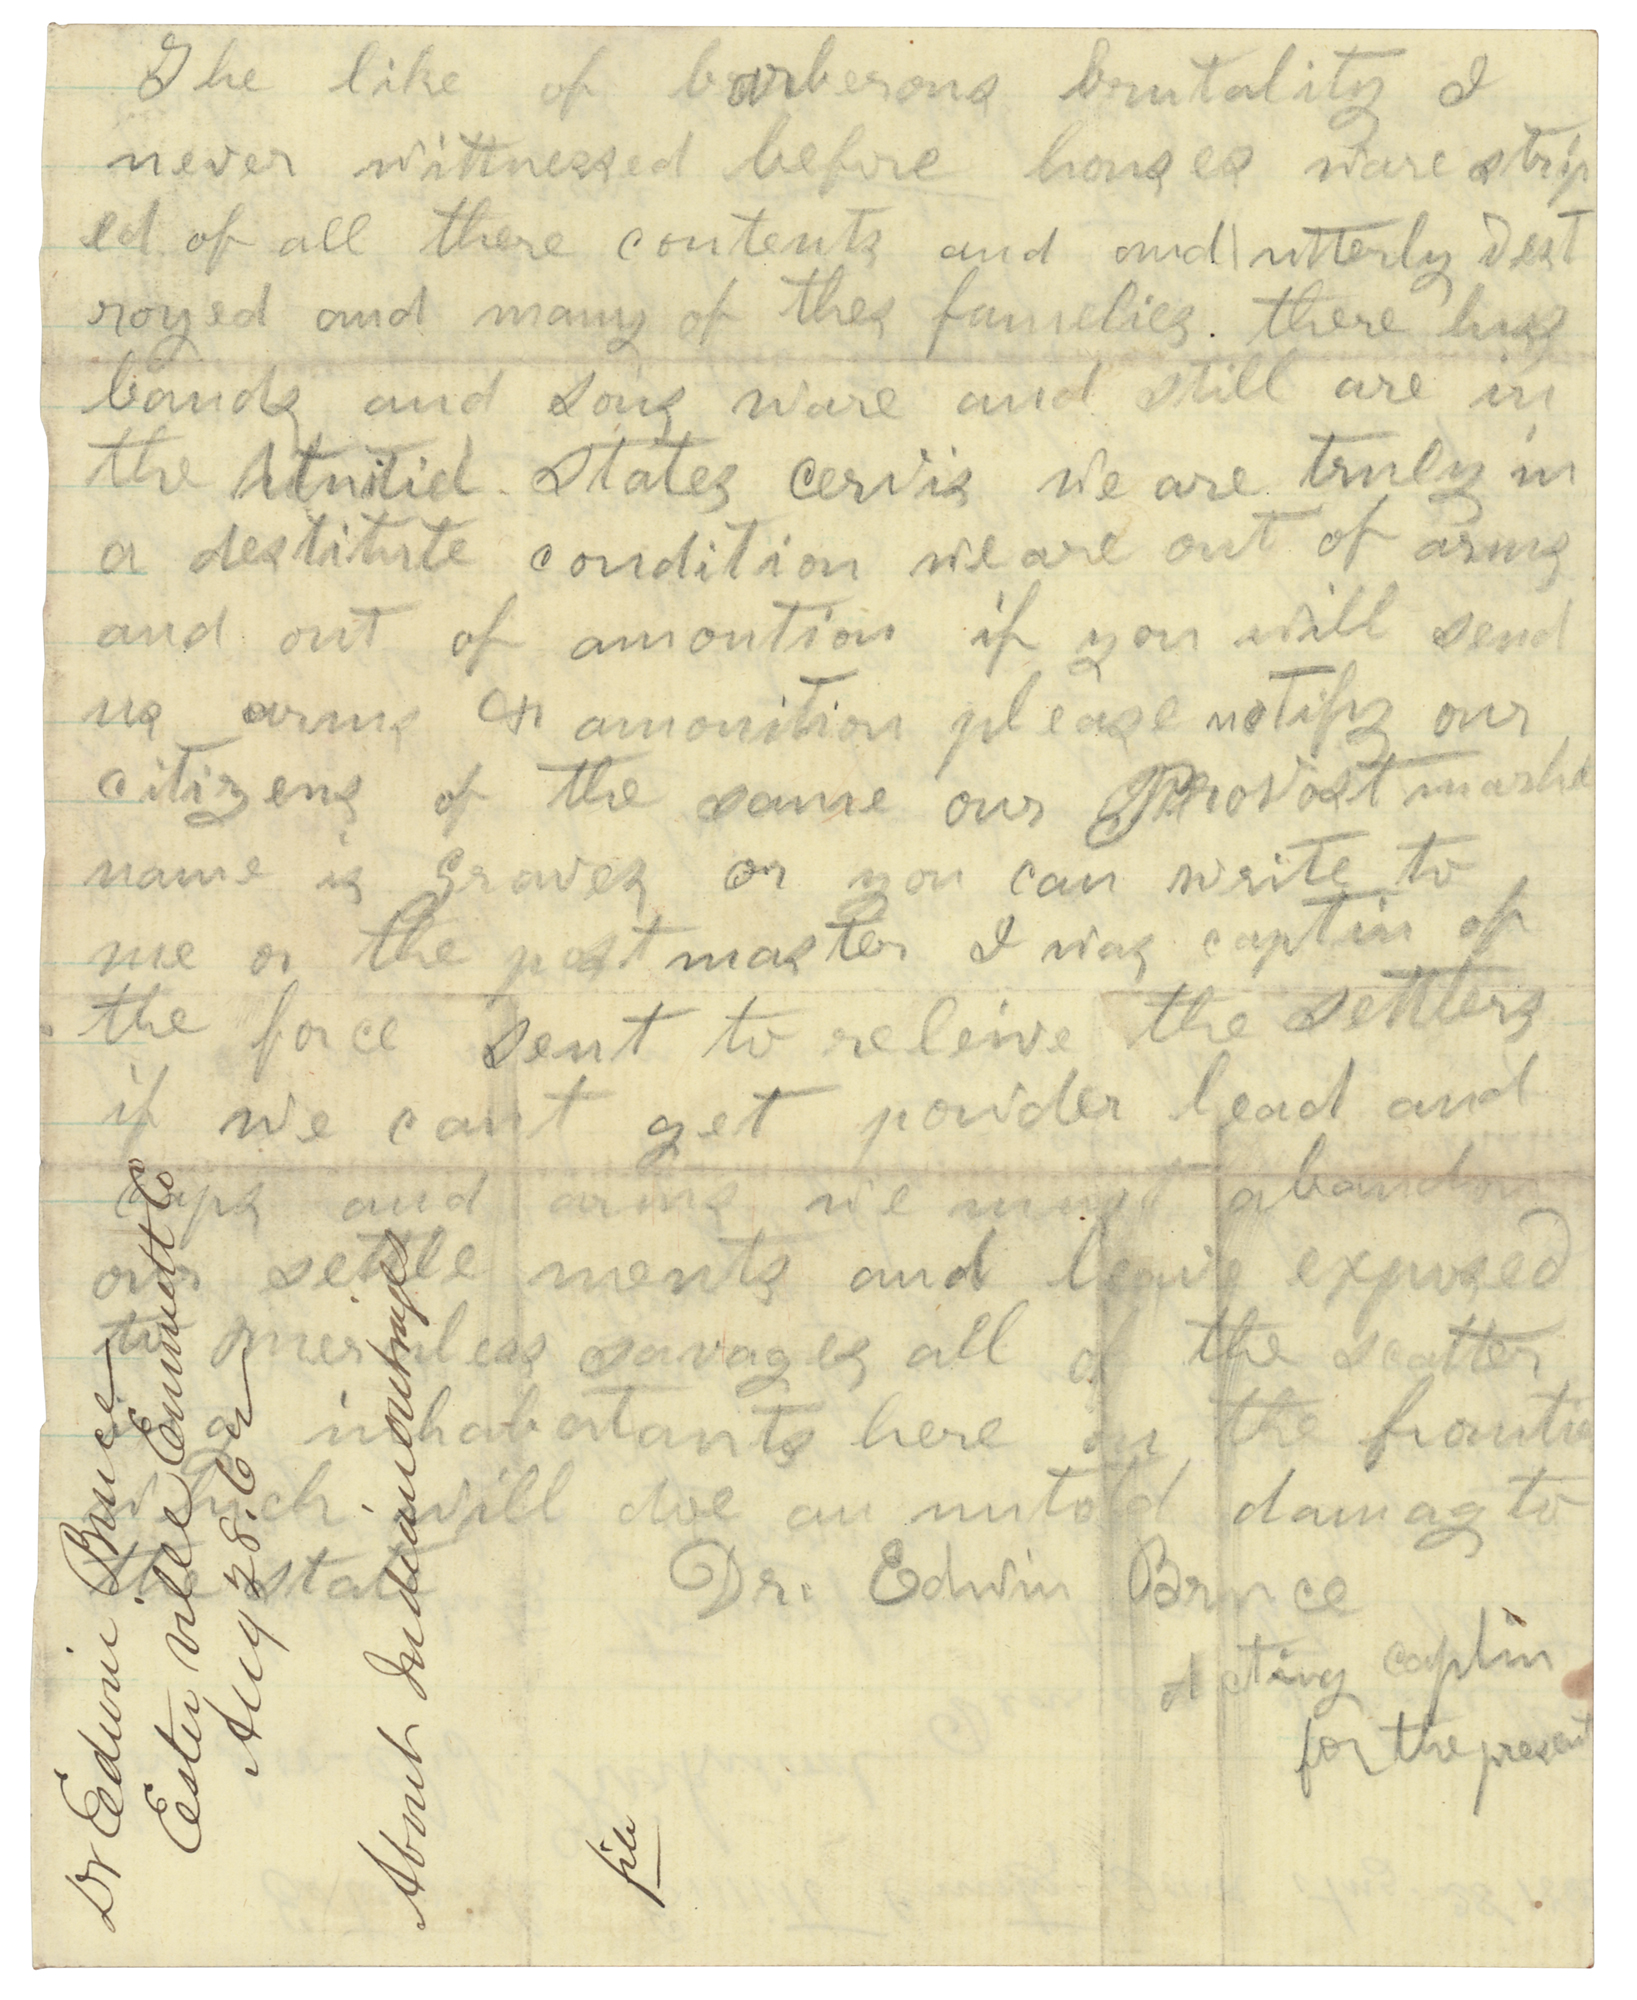 The like of barberous brutality I
never wittnessed before houses ware strip
ed of all there contents and and utterly dest
royed and many of thes families there hus
bands and sons ware and still are in
the Unitid States cervis we are truly in
a destitute condition we are out of arms
and out of amoution if you will send
us arms or amonition please notify our
citizens of the same our Provost marshel
name is Graves or you can write to
me or the post master I was captin of
the force sent to releive the settlers
if we cant get powder lead and
caps and arms we must abandon
our settle ments and leave exposed
to merciless savages all of the scatter
inhabatants here on the frontier
which will doe an untold damag to
the state Dr. Edwin Bruce
Acting captin
for the present
Dr Edwin Bruce
Ester ville Emmott Co
Aug 28. 62
About Indian outrages
file